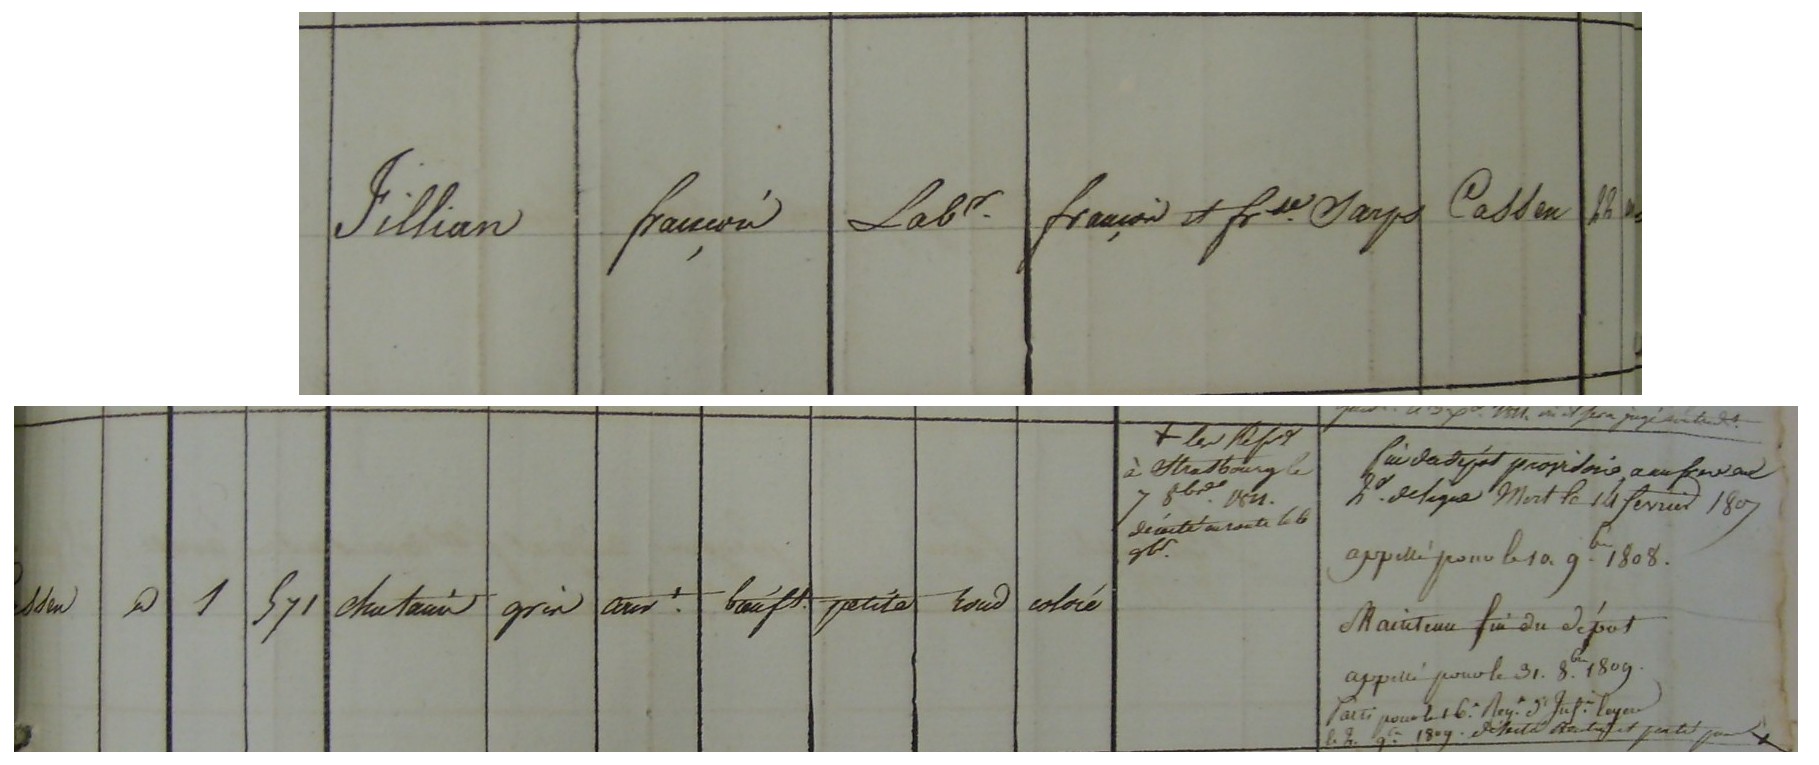 Tillian françois Labr. françois et frse. Darps Cassen 22
Cassen id 1 571 chatain gris bœuft. petite rond coloré
+ les Refrs
à Strasbourg le
7 8bre. 1811.
déserté en route le 6
9bre.
fin du dépot provisoire, a un frere au
Mort le 14 fevrier 1807
appellé pour le 10. 9bre 1808.
Maintenu fin du dépot
appellé pour le 31. 8bre 1809.
Parti pour le 16e. Regt. d'Infie. legere
le 2. 9bre 1809. Déserté